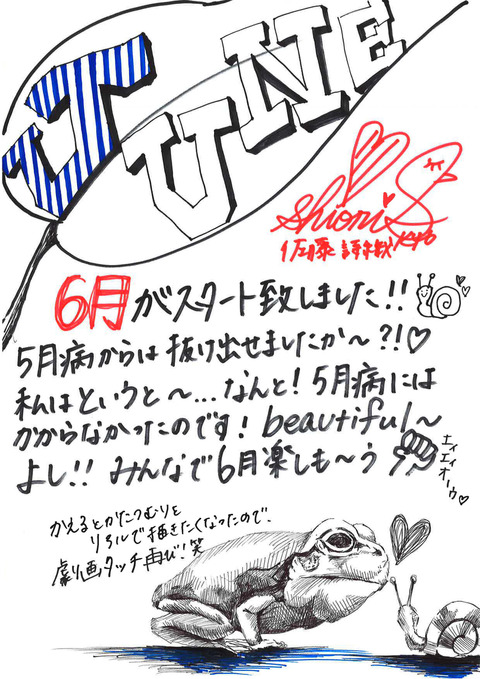 JUNE
Shioni S
佐藤詩織
6月がスタート致しました!!
5月病からは抜け出せましたか〜?!♡
私はというと〜...なんと!5月病には
かからなかったのです! beautiful〜
よし!! みんなで6月楽しも〜う
エイエイオーウ♡
かえるとかたつむりを
リアルで描きたくなったので、
劇画タッチ再び!笑